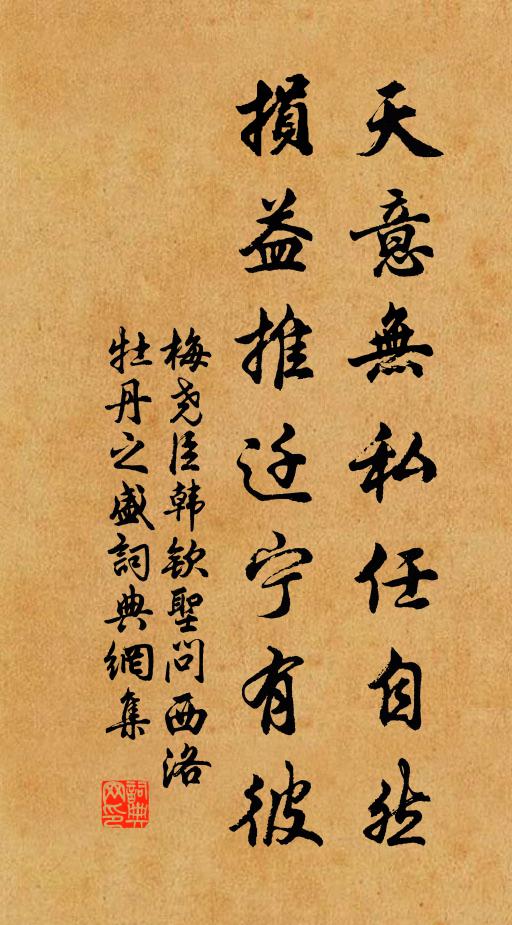 天意無私任自然
損益推迁宁有彼
梅尧臣韩钦聖问西洛
牡丹之盛詞典網集
詞典網印